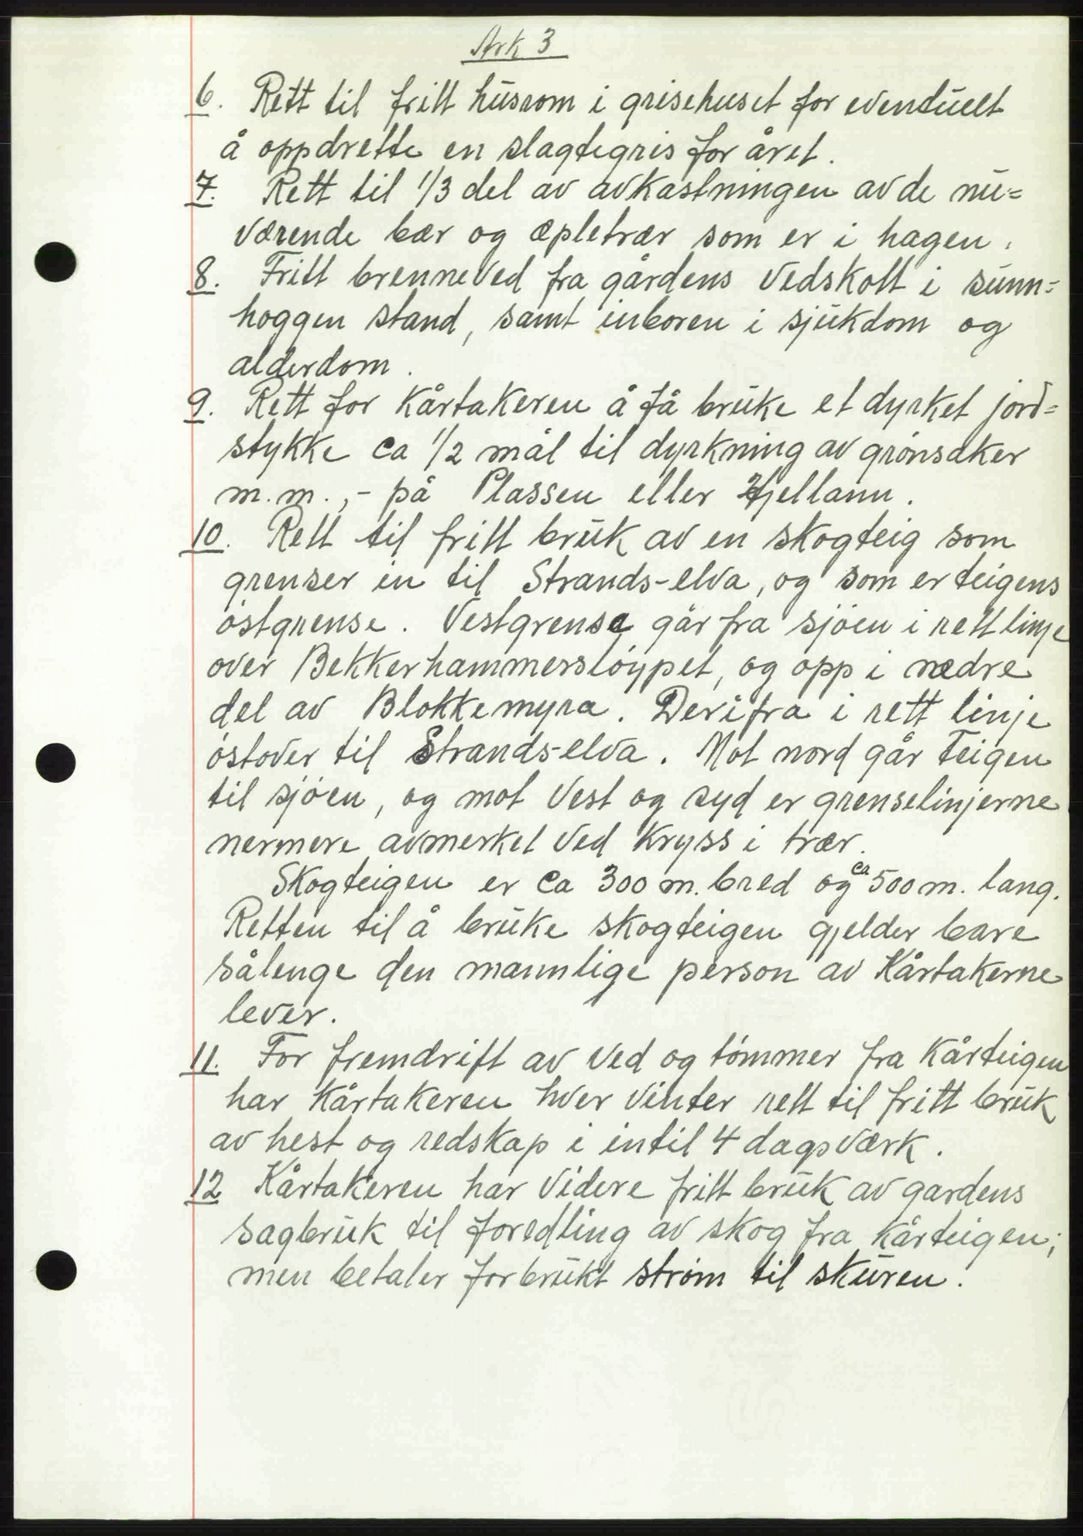 Ark 3
6. Rett til fritt husrom i grisehuset for eventuelt
å oppdrette en slagtegris for året.
7. Rett til 1/3 del av avkastningen av de nu=
værende bær og æpletrær som er i hagen.
8. Fritt brenneved fra gårdens vedskott i sunn=
hoggen stand, samt inboren i sjukdom og
alderdom.
9. Rett for Kårtakeren å få bruke et dyrket jord=
stykke ca 1/2 mål til dyrkning av grønsaker
m.m., - på Plassen eller Hjellann.
10. Rett til fritt bruk av en skogteig som
grenser in til Strands-elva, og som er teigens
østgrense. Vestgrense går fra sjøen i rett linje
over Bekkerhammersløypet, og opp i nedre
del av Blokkemyra. Derifra i rett linje
østover til Strands-elva. Mot nord går Teigen
til sjøen, og mot Vest og syd er grenselinjerne
nermere avmerket ved kryss i trær.
Skogteigen er ca 300 m. bred og ca 500 m. lang.
Retten til å bruke skogteigen gjelder bare
sålenge den mannlige person av Kårtakerne
lever.
11. For fremdrift av ved og tømmer fra Kårteigen
har Kårtakeren hver vinter rett til fritt bruk
av hest og redskap i intil 4 dagsværk.
12 Kårtakeren har videre fritt bruk av gardens
sagbruk til foredling av skog fra Kårteigen;
men betaler forbrukt strøm til skuren.